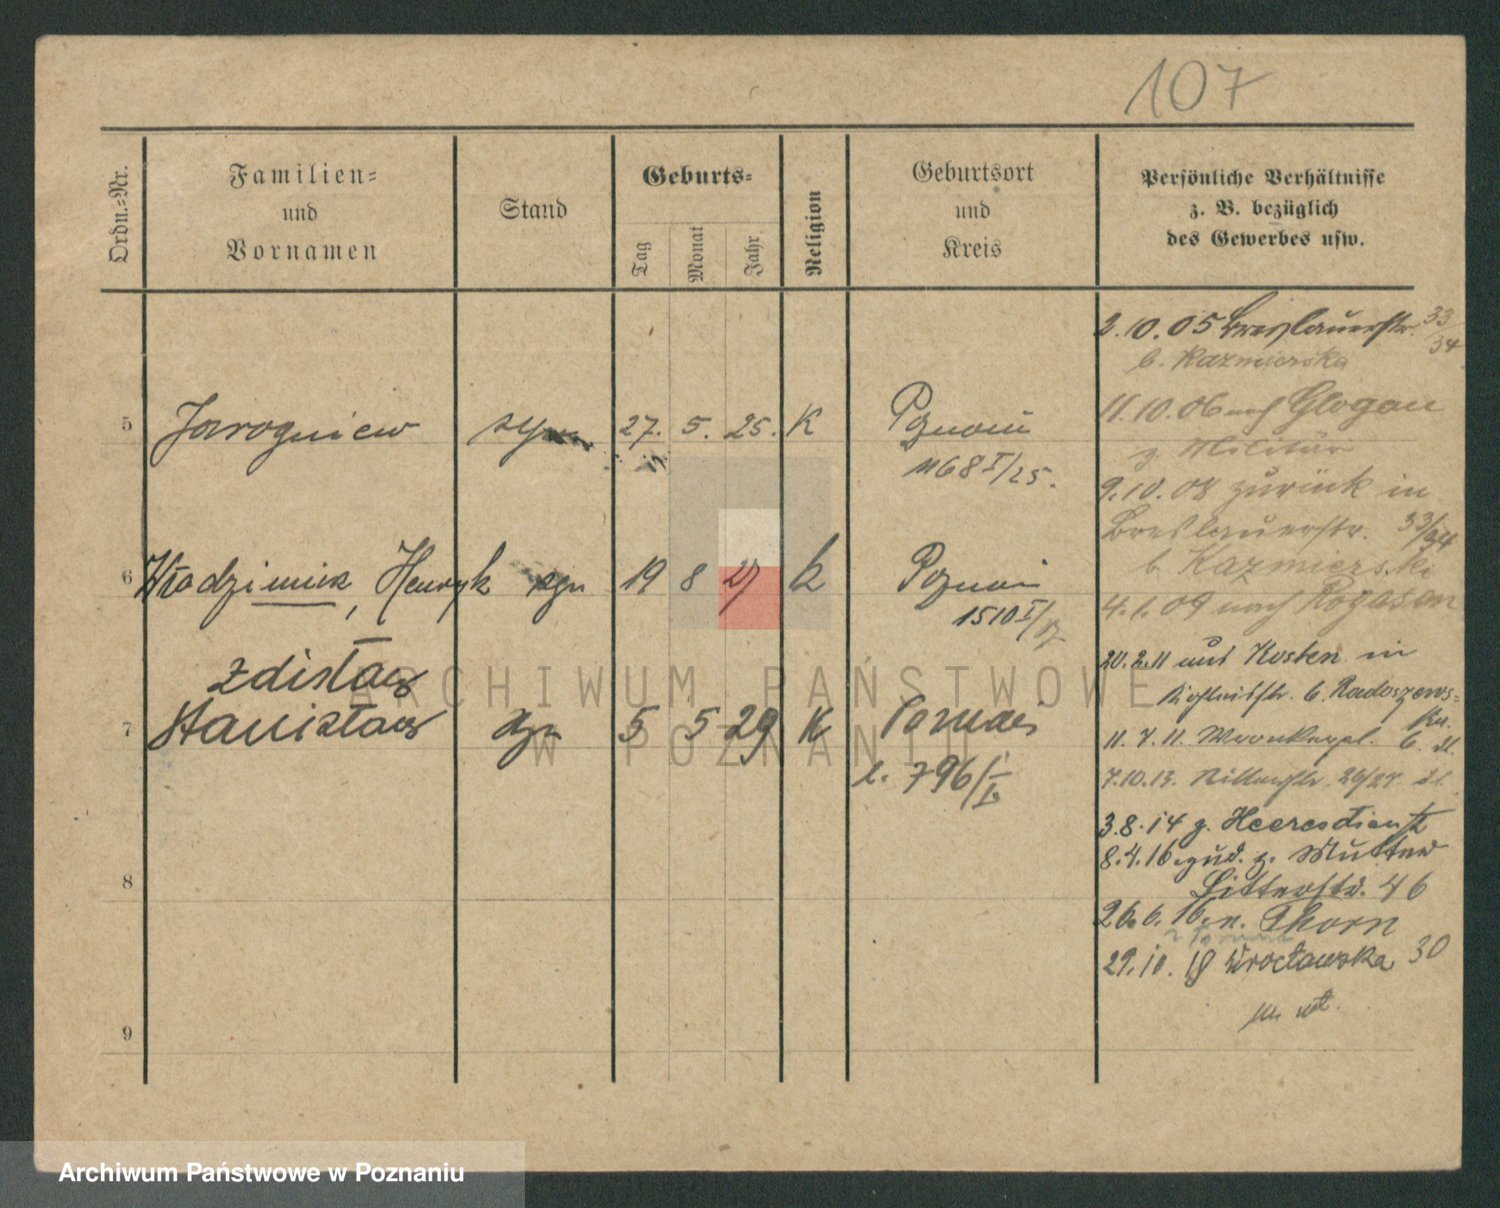 107
Ordn.=Nr.
Familien=
und
Vornamen
Stand
Geburts=
Tag
Monat
Jahr
Religion
Geburtsort
und
Kreis
Persönliche Verhältnisse
z. B. bezüglich
des Gewerbes usw.
5 Jarogniew syn 27. 5. 25. K Poznań
1168 I/25.
6 Włodzimierz, Henryk syn 19 8 27 k Poznań
1510 I/27
Zdisław
7 Stanisław syn 5 5 29 K Poznań
l. 796/I
8
9
2.10.05 Breslauerstr. 33/34
b. Kazmierska
11.10.06 nach Glogau
z. Militär
9.10.08 zurück in
Breslauerstr. 33/34
b. Kazmierski
4.1.09 nach Rogasen
20.2.11 aus Kosten in
b. Radoszews=
11.7.11.
7.10.13. Ritterstr.
3.8.14 z. Heeresdienst
8.4.16 zur. z. Mutter
Ritterstr. 46
26.6.16. n. Thorn
29.10.18 Wrocławska 30
ARCHIWUM PAŃSTWOWE
W POZNANIU
Archiwum Państwowe w Poznaniu